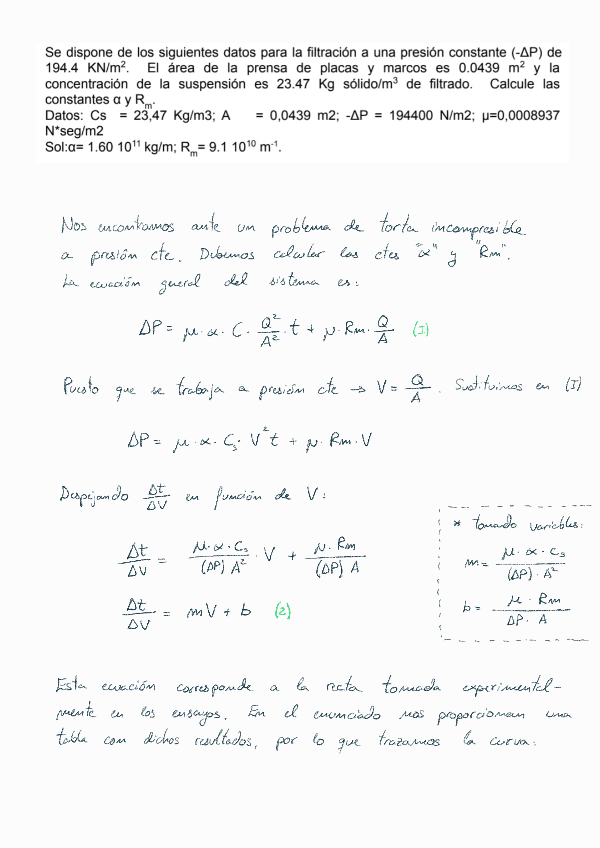 Se dispone de los siguientes datos para la filtración a una presión constante (-ΔP) de
194.4 KN/m². El área de la prensa de placas y marcos es 0.0439 m² y la
concentración de la suspensión es 23.47 Kg sólido/m³ de filtrado. Calcule las
constantes α y Rm.
Datos: Cs = 23,47 Kg/m3; A = 0,0439 m2; -ΔP = 194400 N/m2; μ=0,0008937
N*seg/m2
Sol:α= 1.60 10¹¹ kg/m; Rm= 9.1 10¹⁰ m⁻¹.
Nos encontramos ante un problema de torta incompresible
a presión cte. Debemos calcular las ctes "α" y "Rm".
La ecuación general del sistema es:
ΔP = μ·α·C·Q²/A²·t + μ·Rm·Q/A (I)
Puesto que se trabaja a presión cte → V = Q/A. Sustituimos en (I)
ΔP = μ·α·Cs·V²t + μ·Rm·V
Despejando Δt/ΔV en función de V:
Δt/ΔV = μ·α·Cs/(ΔP)A² · V + μ·Rm/(ΔP)A
Δt/ΔV = mV + b (2)
* tomando variables:
m = μ·α·Cs/(ΔP)·A²
b = μ·Rm/ΔP·A
Esta ecuación corresponde a la recta tomada experimental-
mente en los ensayos. En el enunciado nos proporcionan una
tabla con dichos resultados, por lo que trazamos la curva: